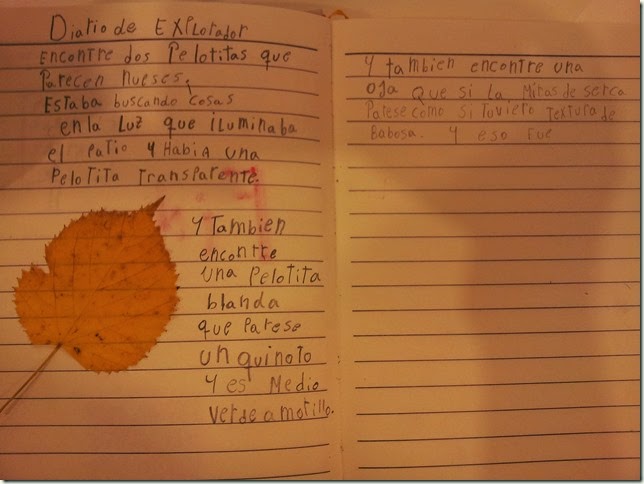 Diario de EXPLorador
encontre dos Pelotitas que
Parecen nueses.
Estaba buscando cosas
en la Luz que iLuminaba
el Patio y HabiA una
PeLotita transparente.
y Tambien
encontre
una Pelotita
blanda
que Parese
un quinoto
y es Medio
verde amarillo.
y tambien encontre una
oja que si la Miras de serca
Parese como si tuviera textura de
Babosa. y eso fue